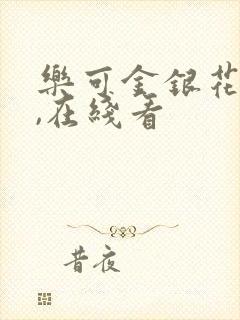 樂可金銀花
,在綫看
昔夜